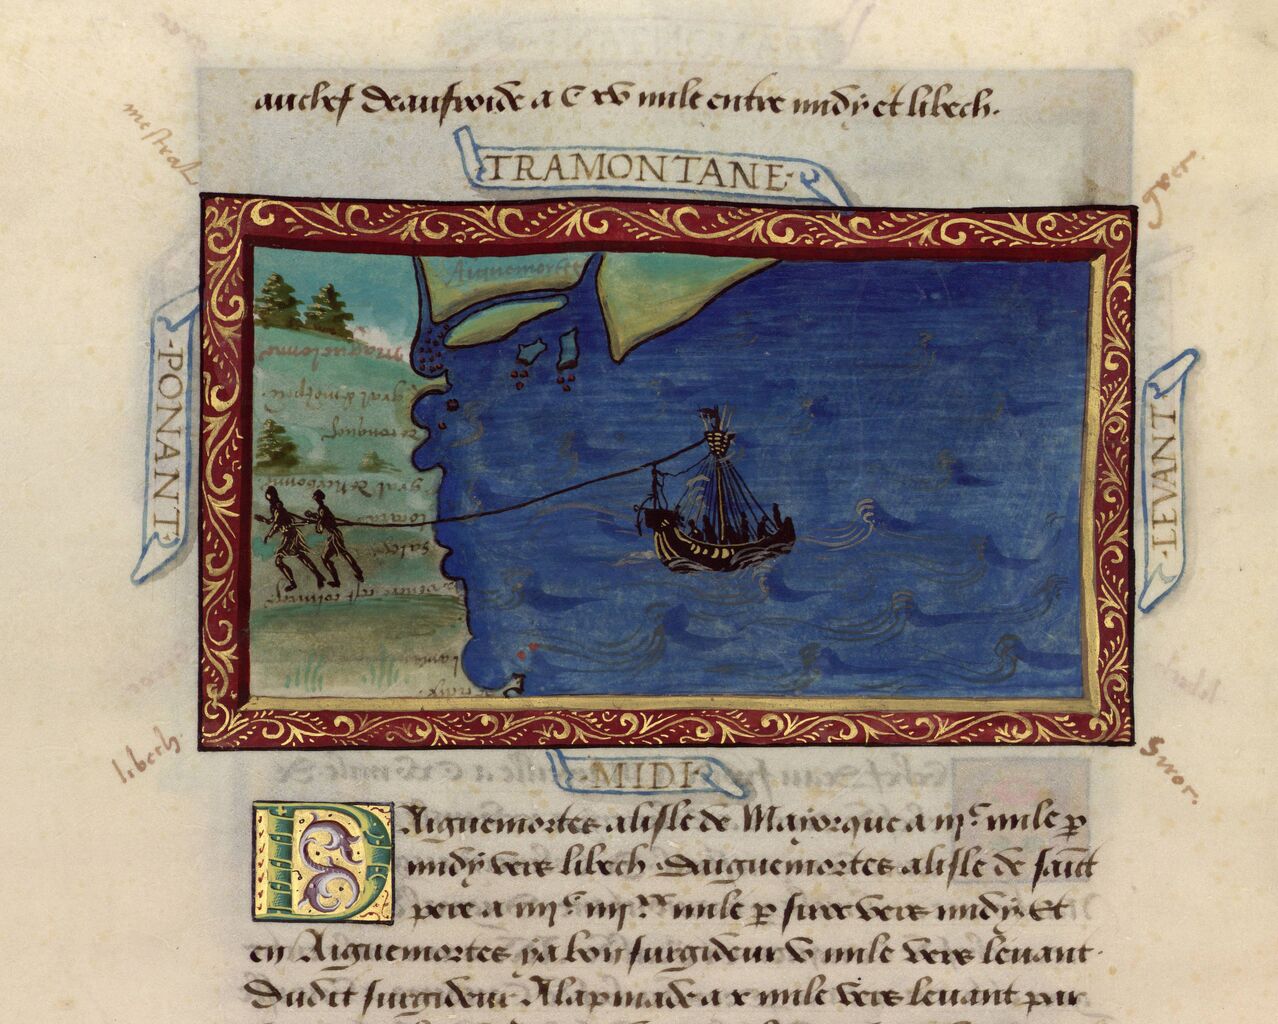 auchef deaufroide a C xv mile entre midy et libech.
mestral
TRAMONTANE
grer
Aiguemortes
PONANT
LEVANT
maguelonne
libech.
MIDI
Siror.
DAiguemortes a lisle de Mayorque a iijᶜ mile ꝑ
midy vers libech Daiguemortes a lisle de saīct
pere a iiijᶜ iiijˣˣ mile ꝑ surx vers midy Et
en Aiguemortes ya bon surgideur v mile vers levant.
Dudit surgideur A lapinade a x mile vers levant par